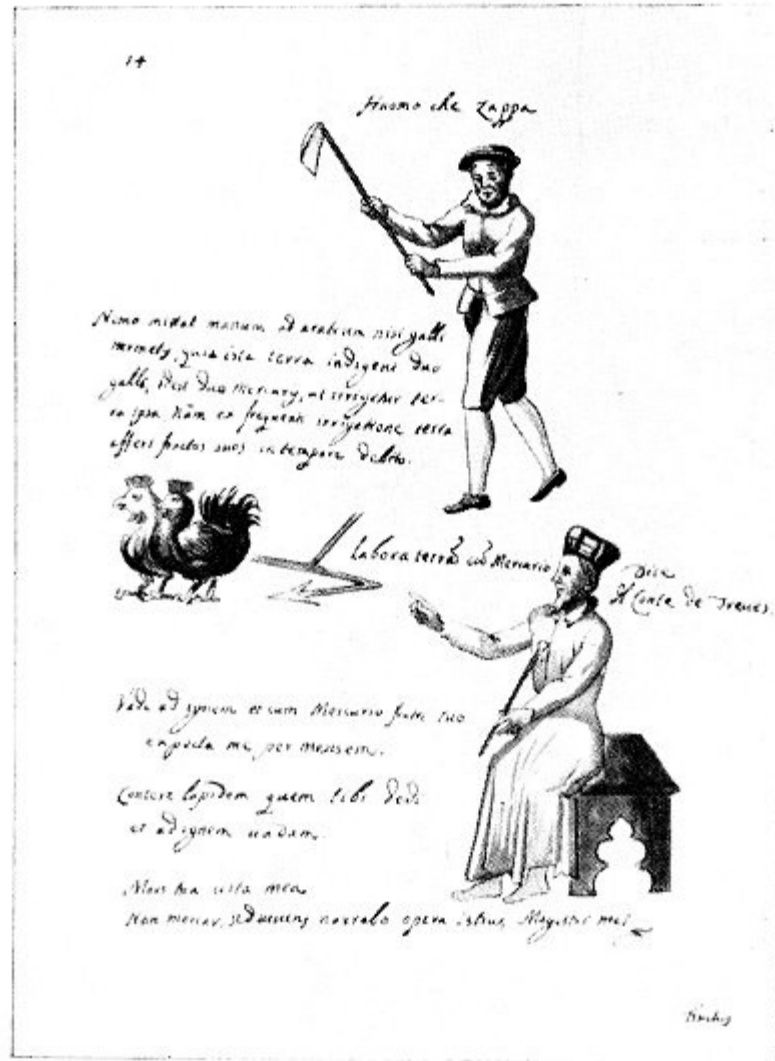 14
Huomo che zappa
Nemo mittat manum ad aratrum nisi galli
mermety, quia ista terra indigeni duo
galli, id est duo mercury, ut irrigetur ter-
ra ipsa. Nam ex frequenti irrigatione terra
affert fructus suos in tempore debito.
labora terrā cū Mercurio
Dice
il Conte de Treues.
Vade ad ignem et cum Mercurio fratre tuo
expecta me, per mensem.
Contere lapidem quem tibi dedi
et ad ignem uadam.
Mors tua uita mea
Non moriar, sed uiuens narrabo opera istius Magistri mei